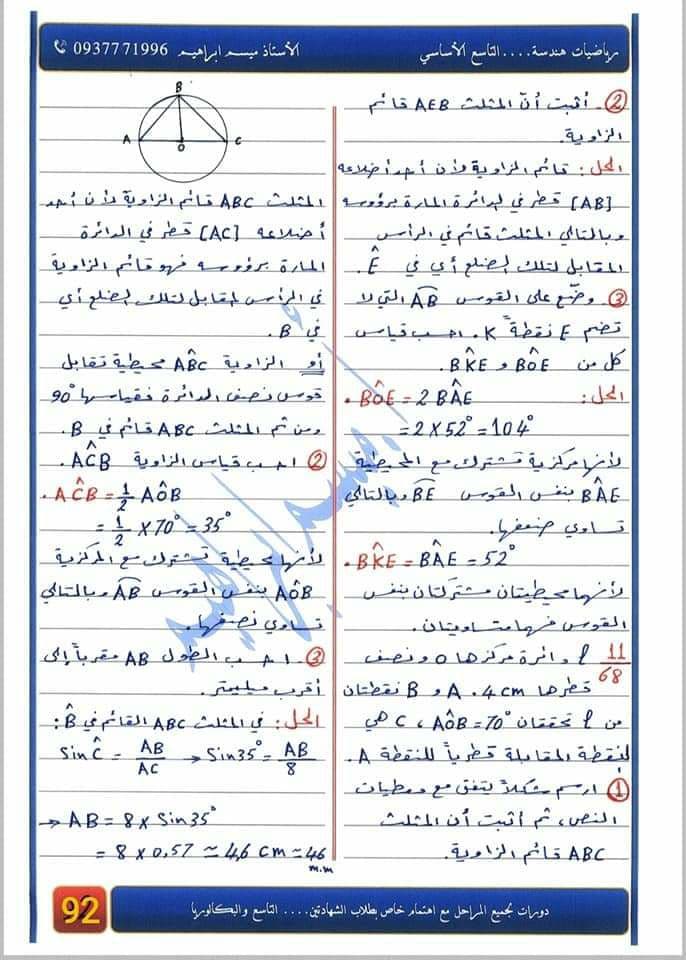 رياضيات هندسة .... التاسع الأساسي
الأستاذ ميسم ابراهيم 0937771996
② - أثبت أنّ المثلث AEB قائم
الزاوية.
الحل: قائم الزاوية لأن أحد أضلاعه
[AB] قطر في الدائرة المارة برؤوسه
وبالتالي المثلث قائم في الرأس
المقابل لتلك الضلع أي في Ê.
③ وضّع على القوس AB التي لا
تضم E نقطةً K. احسب قياس
كل من BÔE و BK̂E.
الحل: BÔE = 2 BÂE
= 2 × 52° = 104°
لأنها مركزية تشترك مع المحيطية
BÂE بنفس القوس BE وبالتالي
تساوي ضعفها.
BK̂E = BÂE = 52°
لأنها محيطيتان مشتركتان بنفس
القوس فهما متساويتان.
11/68 ℓ دائرة مركزها O ونصف
قطرها 4 cm. A و B نقطتان
من ℓ تحققان AÔB = 70°، C هي
النقطة المقابلة قطرياً للنقطة A.
① ارسم شكلاً يتفق مع معطيات
النص، ثم أثبت أن المثلث
ABC قائم الزاوية.
B
A O C
المثلث ABC قائم الزاوية لأن أحد
أضلاعه [AC] قطر في الدائرة
المارة برؤوسه فهو قائم الزاوية
في الرأس المقابل لتلك الضلع أي
في B.
أو الزاوية AB̂C محيطية تقابل
قوس نصف الدائرة فقياسها 90°
ومن ثم المثلث ABC قائم في B.
② احسب قياس الزاوية AĈB.
AĈB = 1/2 AÔB
= 1/2 × 70° = 35°
لأنها محيطية تشترك مع المركزية
AÔB بنفس القوس AB وبالتالي
تساوي نصفها.
③ - احسب الطول AB مقرباً إلى
أقرب ميليمتر.
الحل: في المثلث ABC القائم في B̂:
Sin Ĉ = AB/AC → Sin 35° = AB/8
→ AB = 8 × Sin 35°
= 8 × 0,57 ≈ 4,6 cm ≈ 46 m.m
ميسم ابراهيم
دورات لجميع المراحل مع اهتمام خاص بطلاب الشهادتين .... التاسع والبكالوريا
92